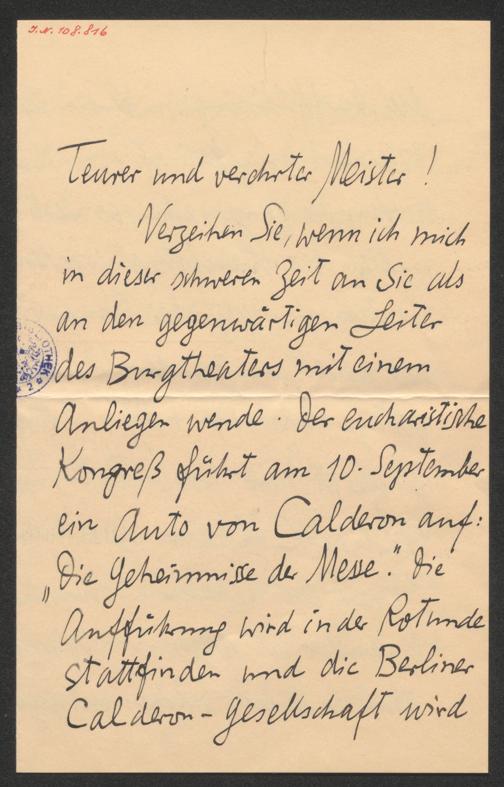 I.N. 108.816
Teurer und verehrter Meister!
Verzeihen Sie, wenn ich mich
in dieser schweren Zeit an Sie als
an den gegenwärtigen Leiter
des Burgtheaters mit einem
Anliegen wende. Der eucharistische
Kongreß führt am 10. September
ein Auto von Calderon auf:
„Die Geheimnisse der Messe." Die
Aufführung wird in der Rotunde
stattfinden und die Berliner
Calderon-Gesellschaft wird